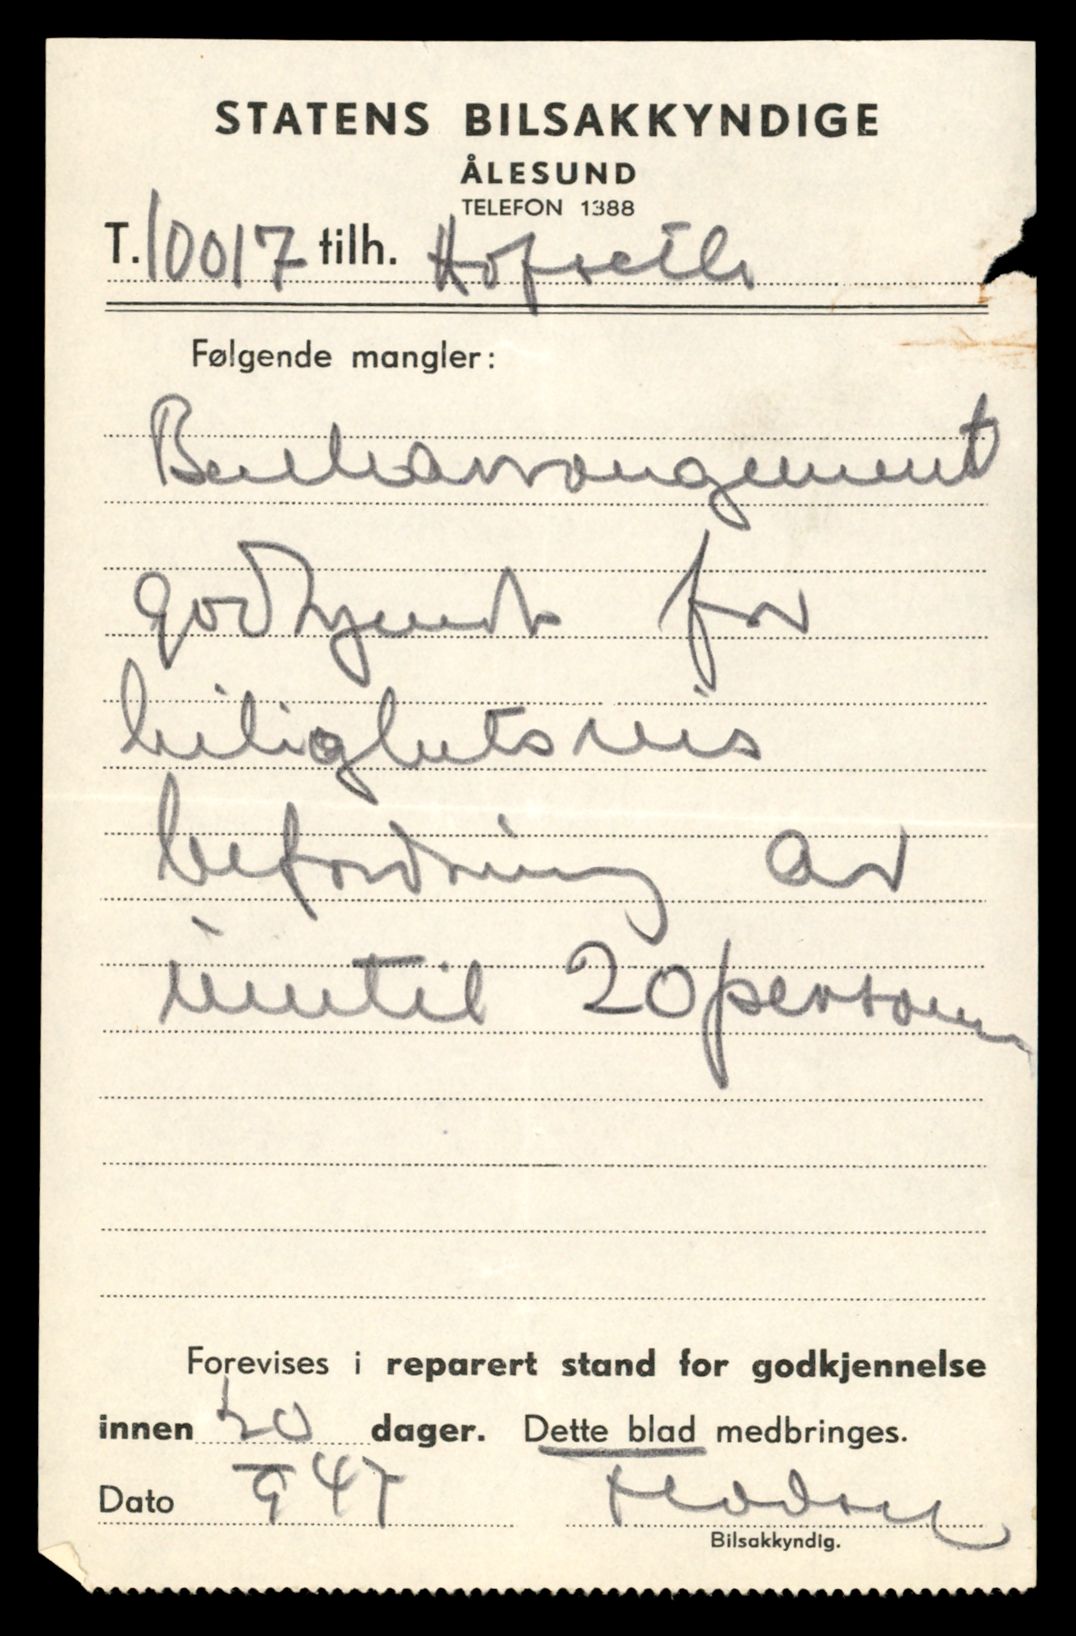 STATENS BILSAKKYNDIGE
ÅLESUND
TELEFON 1388
T. 10017 tilh. Hofseth
Følgende mangler:
Benkarrangement
godkjendt for
leilighetsvis
befordring av
inntil 20 personer
Forevises i reparert stand for godkjennelse
innen dager. Dette blad medbringes.
Dato 20/9 47
Bilsakkyndig.